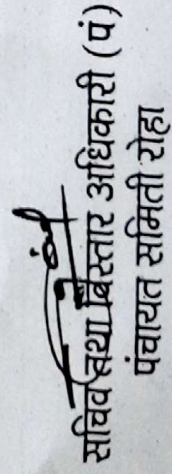 सचिव तथा विस्तार अधिकारी (पं)
पंचायत समिती रोहा